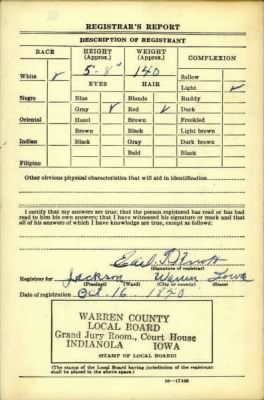 REGISTRAR'S REPORT
DESCRIPTION OF REGISTRANT
RACE HEIGHT (Approx.) WEIGHT (Approx.) COMPLEXION
White ✓ 5-8" 140 Sallow
EYES HAIR Light ✓
Negro Blue Blonde Ruddy
Gray ✓ Red ✓ Dark
Oriental Hazel Brown Freckled
Brown Black Light brown
Indian Black Gray Dark brown
Bald Black
Filipino
Other obvious physical characteristics that will aid in identification
I certify that my answers are true; that the person registered has read or has had
read to him his own answers; that I have witnessed his signature or mark and that
all of his answers of which I have knowledge are true, except as follows:
Earl
(Signature of registrar)
Registrar for Jackson Warren Iowa
(Precinct) (Ward) (City or county) (State)
Date of registration Oct. 16 1940
WARREN COUNTY
LOCAL BOARD
Grand Jury Room, Court House
INDIANOLA IOWA
(STAMP OF LOCAL BOARD)
(The stamp of the Local Board having jurisdiction of the registrant
shall be placed in the above space.)
16—17105